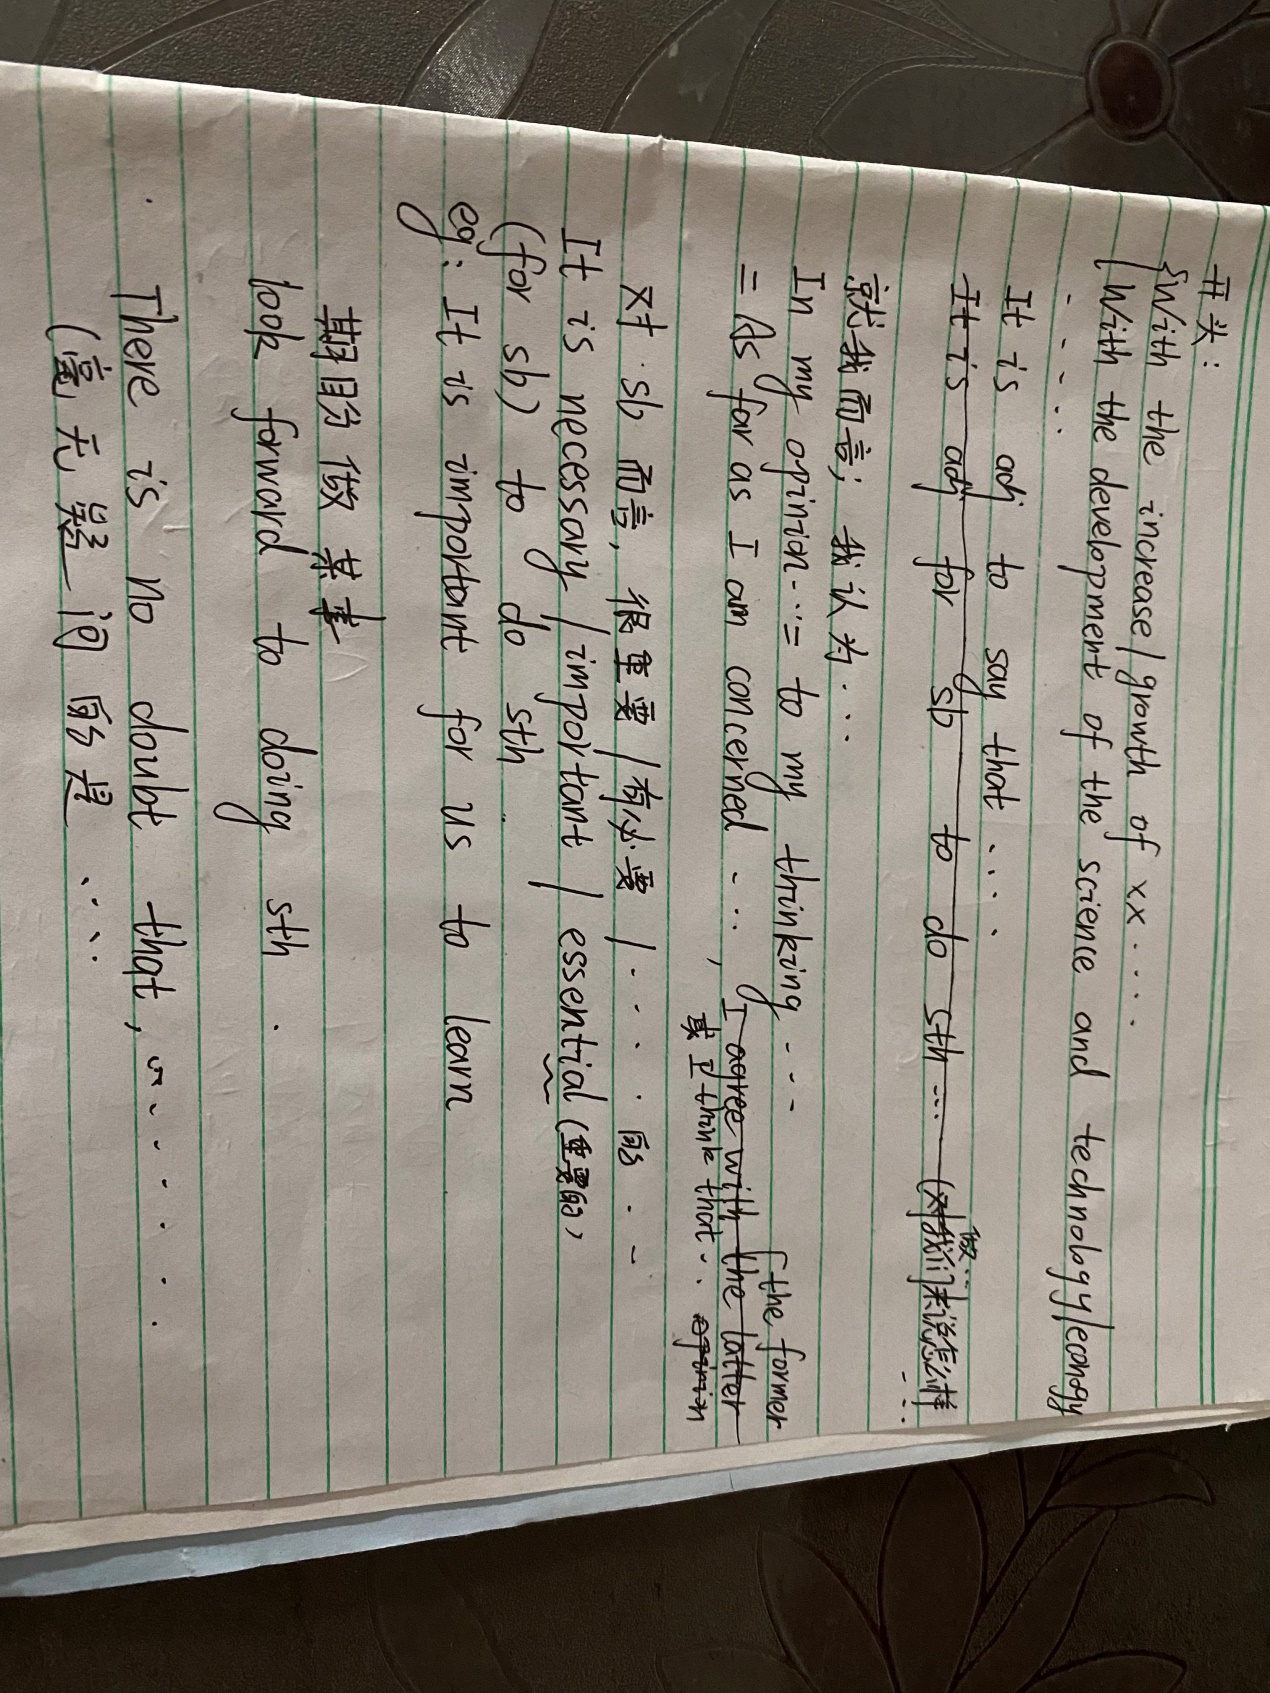 开头：
{With the increase/growth of xx....
With the development of the science and technology/econogy
....
It is adj to say that....
It is adj for sb to do sth... (对我们来说怎么样
做...
...
就我而言，我认为...
In my opinion...= to my thinking ...
{the former
= As far as I am concerned ..., I agree with the latter
或 I think that.. opinion
对 sb 而言，很重要/有必要/....的..
It is necessary/important/essential (重要的)
(for sb) to do sth
eg: It is important for us to learn
期盼做某事
look forward to doing sth.
There is no doubt that, ......
(毫无疑问的是...